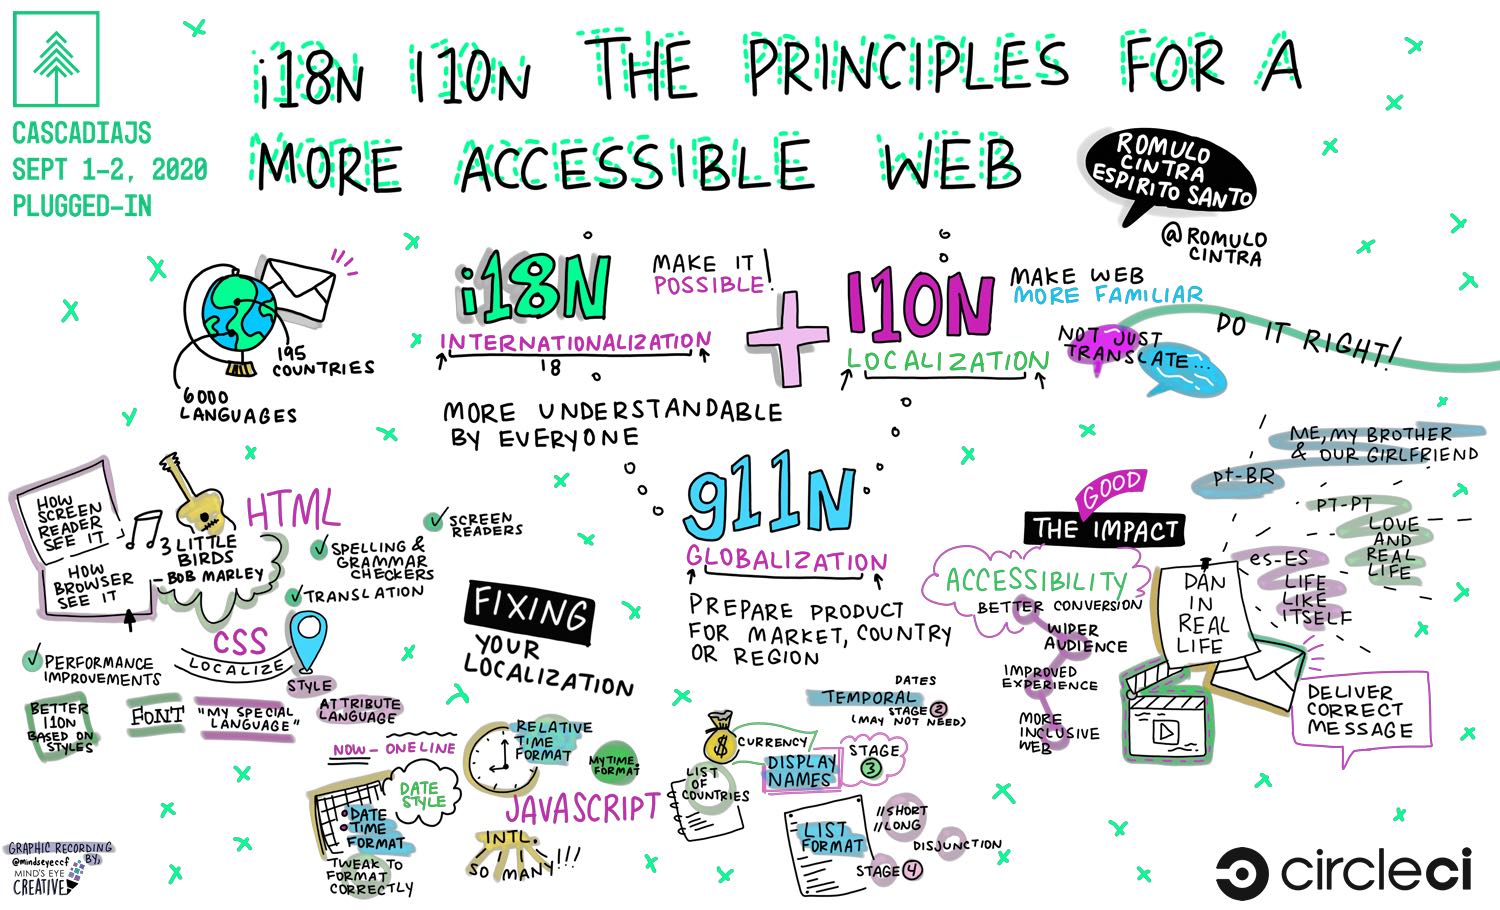 CASCADIAJS
SEPT 1-2, 2020
PLUGGED-IN
i18N l10N THE PRINCIPLES FOR A
MORE ACCESSIBLE WEB
ROMULO
CINTRA
ESPIRITO SANTO
@ROMULO
CINTRA
195
COUNTRIES
6000
LANGUAGES
i18N
MAKE IT
POSSIBLE!
INTERNATIONALIZATION
18
MORE UNDERSTANDABLE
BY EVERYONE
l10N
MAKE WEB
MORE FAMILIAR
LOCALIZATION
NOT JUST
TRANSLATE...
DO IT RIGHT!
g11N
GLOBALIZATION
PREPARE PRODUCT
FOR MARKET, COUNTRY
OR REGION
HOW
SCREEN
READER
SEE IT
HOW
BROWSER
SEE IT
3 LITTLE
BIRDS
- BOB MARLEY
HTML
SCREEN
READERS
SPELLING &
GRAMMAR
CHECKERS
TRANSLATION
CSS
LOCALIZE
STYLE
PERFORMANCE
IMPROVEMENTS
BETTER
l10N
BASED ON
STYLES
FONT
"MY SPECIAL
LANGUAGE"
ATTRIBUTE
LANGUAGE
FIXING
YOUR
LOCALIZATION
NOW - ONE LINE
DATE
STYLE
DATE
TIME
FORMAT
TWEAK TO
FORMAT
CORRECTLY
RELATIVE
TIME
FORMAT
MY TIME
FORMAT
JAVASCRIPT
INTL.
SO MANY!!!
$
CURRENCY
LIST
OF
COUNTRIES
DISPLAY
NAMES
STAGE
3
DATES
TEMPORAL
STAGE 2
(MAY NOT NEED)
LIST
FORMAT
//SHORT
//LONG
DISJUNCTION
STAGE 4
GOOD
THE IMPACT
ACCESSIBILITY
BETTER CONVERSION
WIDER
AUDIENCE
IMPROVED
EXPERIENCE
MORE
INCLUSIVE
WEB
ME, MY BROTHER
& OUR GIRLFRIEND
pt-BR
PT-PT
LOVE
AND
REAL
LIFE
es-ES
LIFE
LIKE
ITSELF
DAN
IN
REAL
LIFE
DELIVER
CORRECT
MESSAGE
GRAPHIC RECORDING
BY,
@mindseyeccf
MIND'S EYE
CREATIVE
circleci